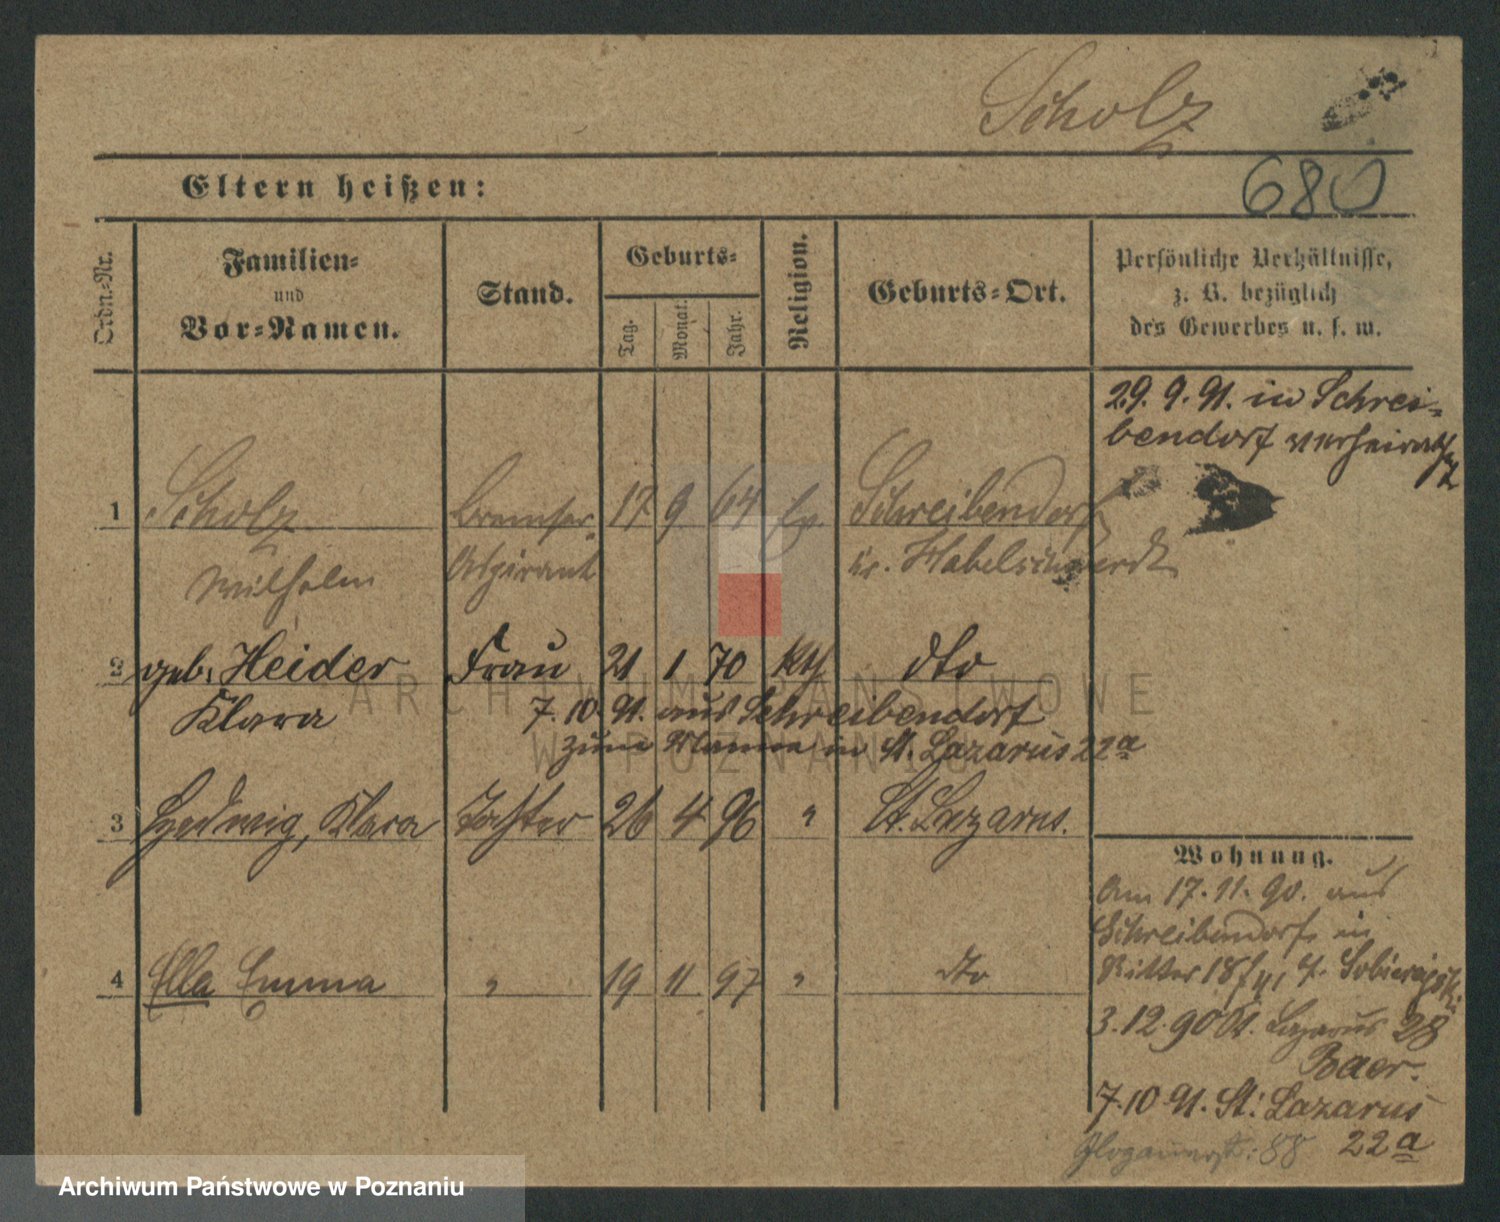 Scholz
680
Eltern heißen:
Ordn.-Nr.
Familien-
und
Vor-Namen.
Stand.
Geburts-
Tag.
Monat.
Jahr.
Religion.
Geburts-Ort.
Persönliche Verhältnisse,
z. B. bezüglich
des Gewerbes u. s. w.
29. 9. 91. in Schrei-
bendorf verheirathet
1 Scholz Bremser- 17 9 64 Ev. Schreibendorf
Wilhelm Aspirant Kr. Habelschwerdt
2 geb. Heider Frau 21 1 70 Kth dto
Klara 7. 10. 91. aus Schreibendorf
zum Manne in St. Lazarus 22a
3 Hedwig, Klara Tochter 26 4 96 " St. Lazarus.
4 Ella Emma " 19 11 97 " dto
Wohnung.
Am 17. 11. 90. aus
Schreibendorf in
Ritter 18
3. 12. 90 St. Lazarus 28
Baer.
7. 10. 91. St. Lazarus
22a
Glogauerstr. 88
ARCHIWUM PAŃSTWOWE
W POZNANIU
Archiwum Państwowe w Poznaniu